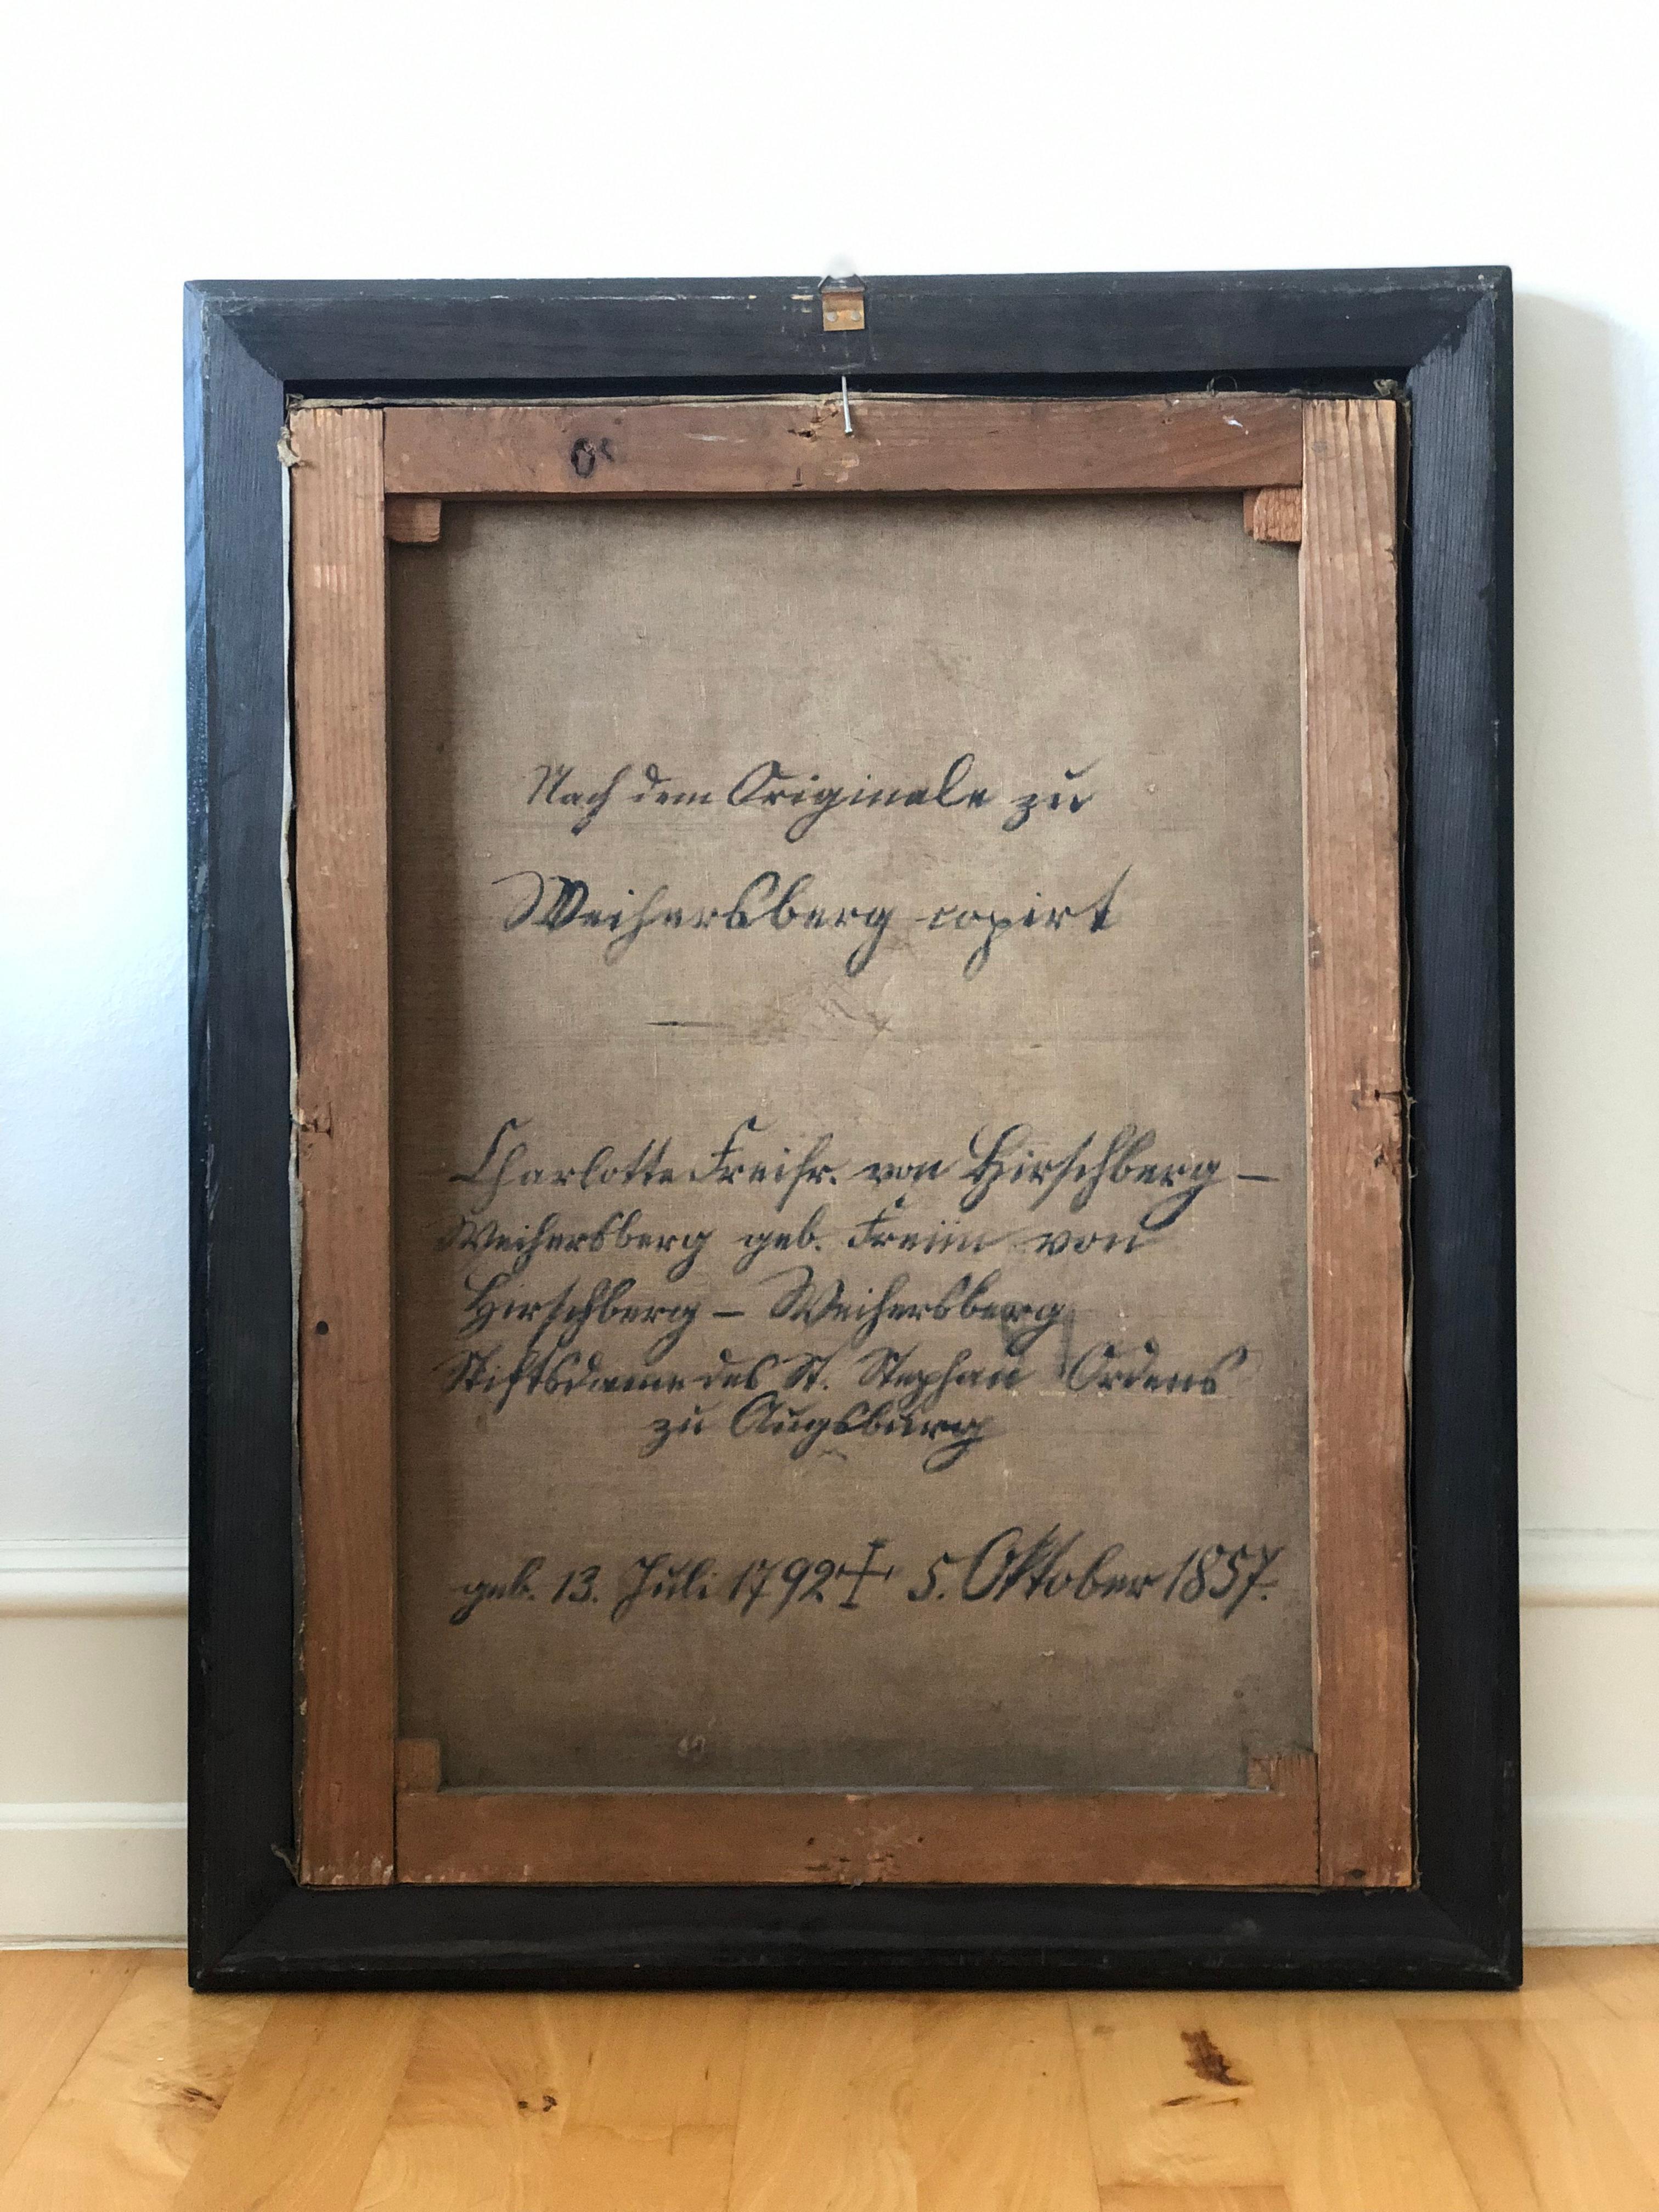 Nach dem Originale zu
Weihersberg copirt
Charlotte Freifr. von Hirschberg –
Weihersberg geb. Freiin von
Hirschberg – Weihersberg
Stiftsdame des St. Stephan Ordens
zu Augsburg
geb. 13. Juli 1792 † 5. Oktober 1857.